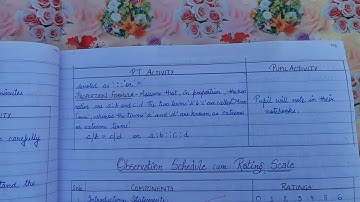 minutes
carefully
stand the
P.T ACTIVITY
PUPIL ACTIVITY
denoted as '::' or '='
PROPORTION FORMULA - Assume that, in proportion, the two
ratios are a:b and c:d. The two terms 'b' & 'c' are called 'Mean
Term', whereas the terms 'a' and 'd' are known as 'extremes
or extreme terms'.
a/b = c/d or a:b::c:d
Pupil will note in their
notebooks.
Observation Schedule cum Rating Scale
S.No COMPONENTS RATINGS
1. Introductory Statements 0 1 2 3 4 5 6